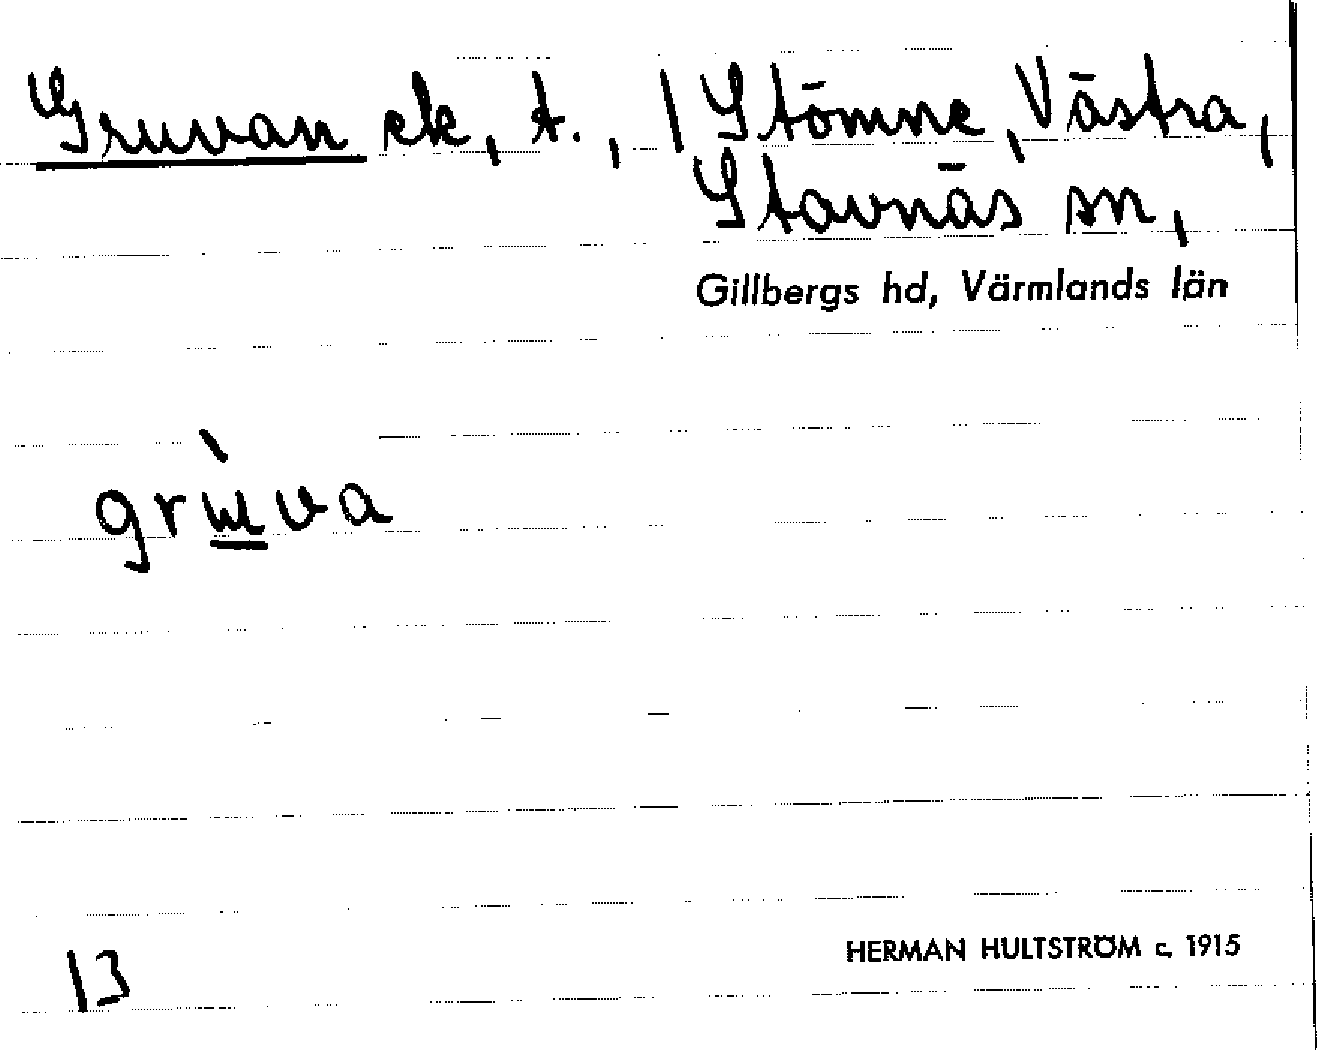 Gruvan ek, t., 1 Stömne, Västra,
Stavnäs sn,
Gillbergs hd, Värmlands län
grùva
13
HERMAN HULTSTRÖM c. 1915